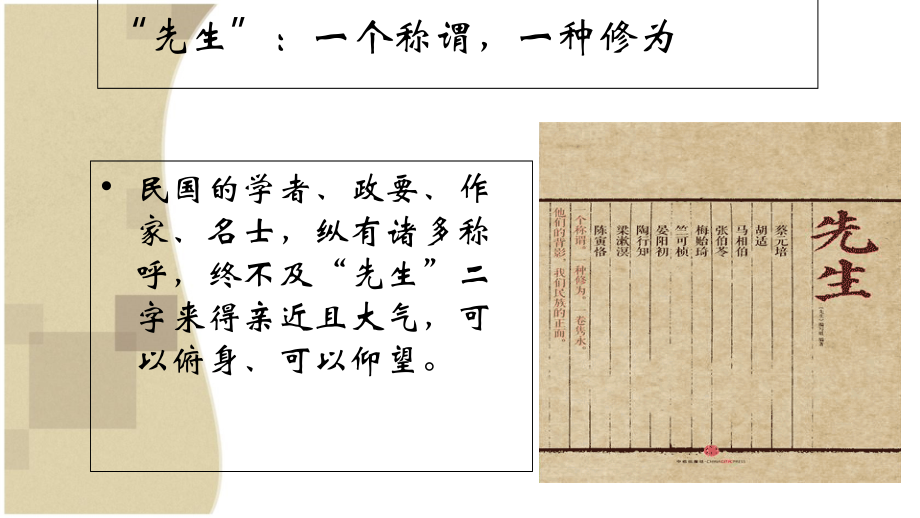 “先生”：一个称谓，一种修为
• 民国的学者、政要、作
家、名士，纵有诸多称
呼，终不及“先生”二
字来得亲近且大气，可
以俯身、可以仰望。
先生
《先生》编写组 编著
蔡元培
胡适
马相伯
张伯苓
梅贻琦
竺可桢
晏阳初
陶行知
梁漱溟
陈寅恪
个称谓，一种修为。一卷隽永。
他们的背影，我们民族的正面。
中信出版社·CHINACITICPRESS